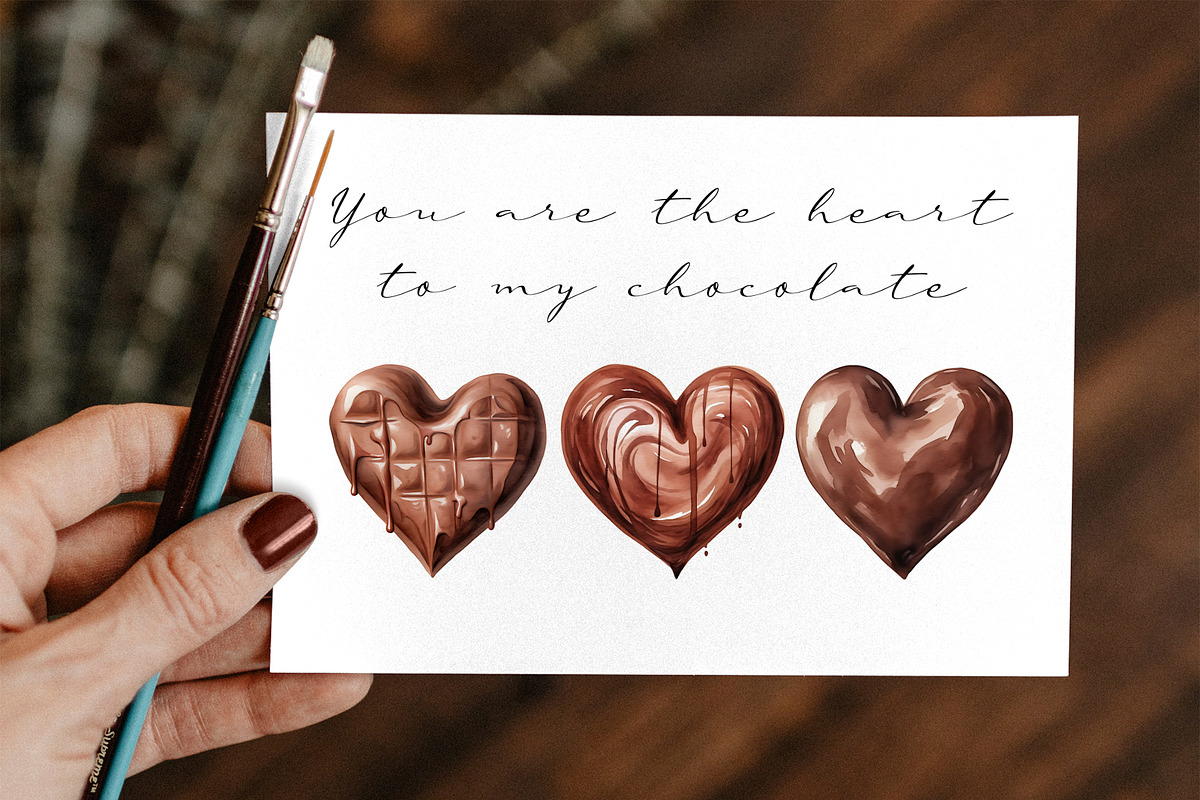 You are the heart
to my chocolate
Supreme™